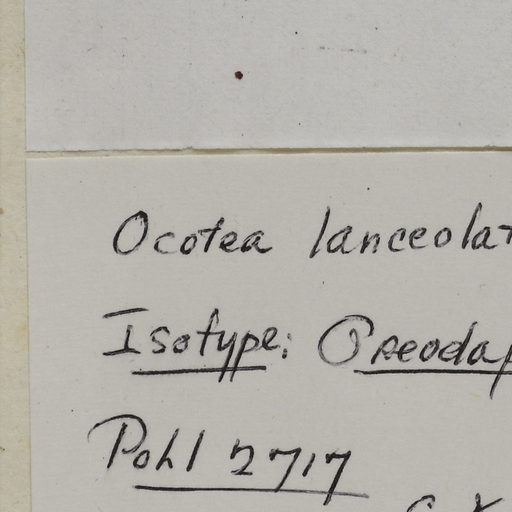 Ocotea lanceolat
Isotype: Oreodap
Pohl 2717